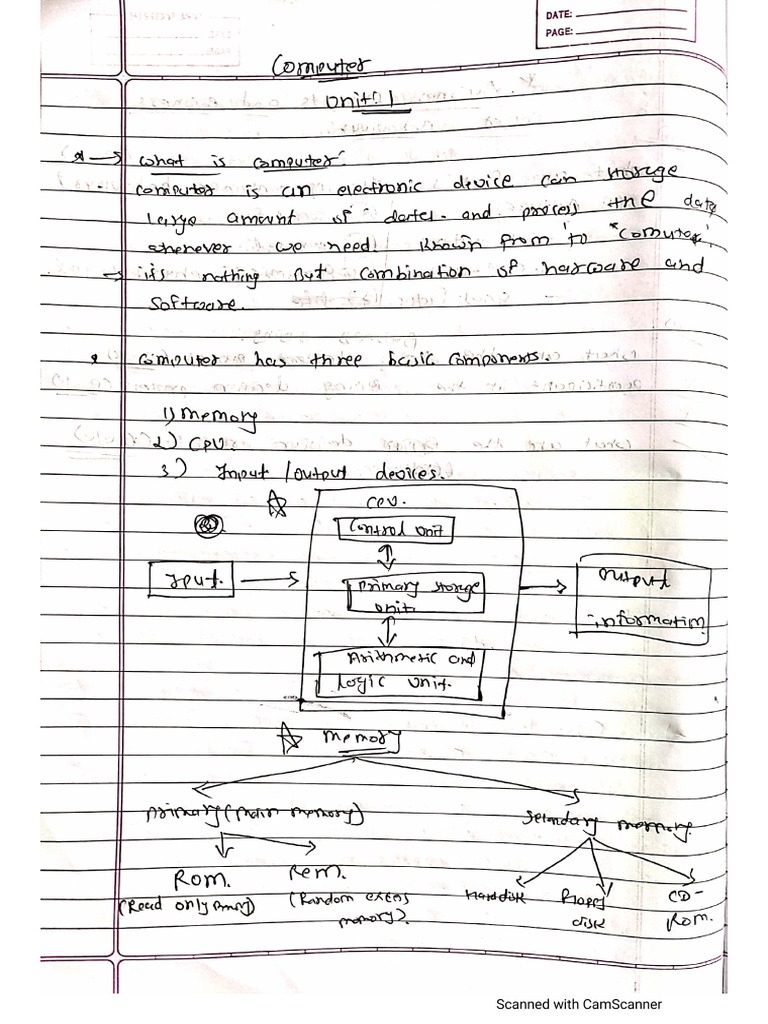 DATE:
PAGE:
Computer
Unit:1
* → What is computer:
- computer is an electronic device can storge
large amount of dates. and process the data
whenever we need. Known from 'to "computer'.
→ it's nothing But combination of harware and
Software.
* Computer has three basic components.
1) memory
2) CPU.
3) Input /output devices.
CPU.
Control unit
Iput.
Primary storge
unit.
output
information
Arithmetic and
Logic unit.
memory
primary (main memory)
Secondary memory.
Rom.
Rem.
(Read only mmory)
(Random exens
memory).
Harddisk
Floppy
disk
CD-
Rom.
Scanned with CamScanner